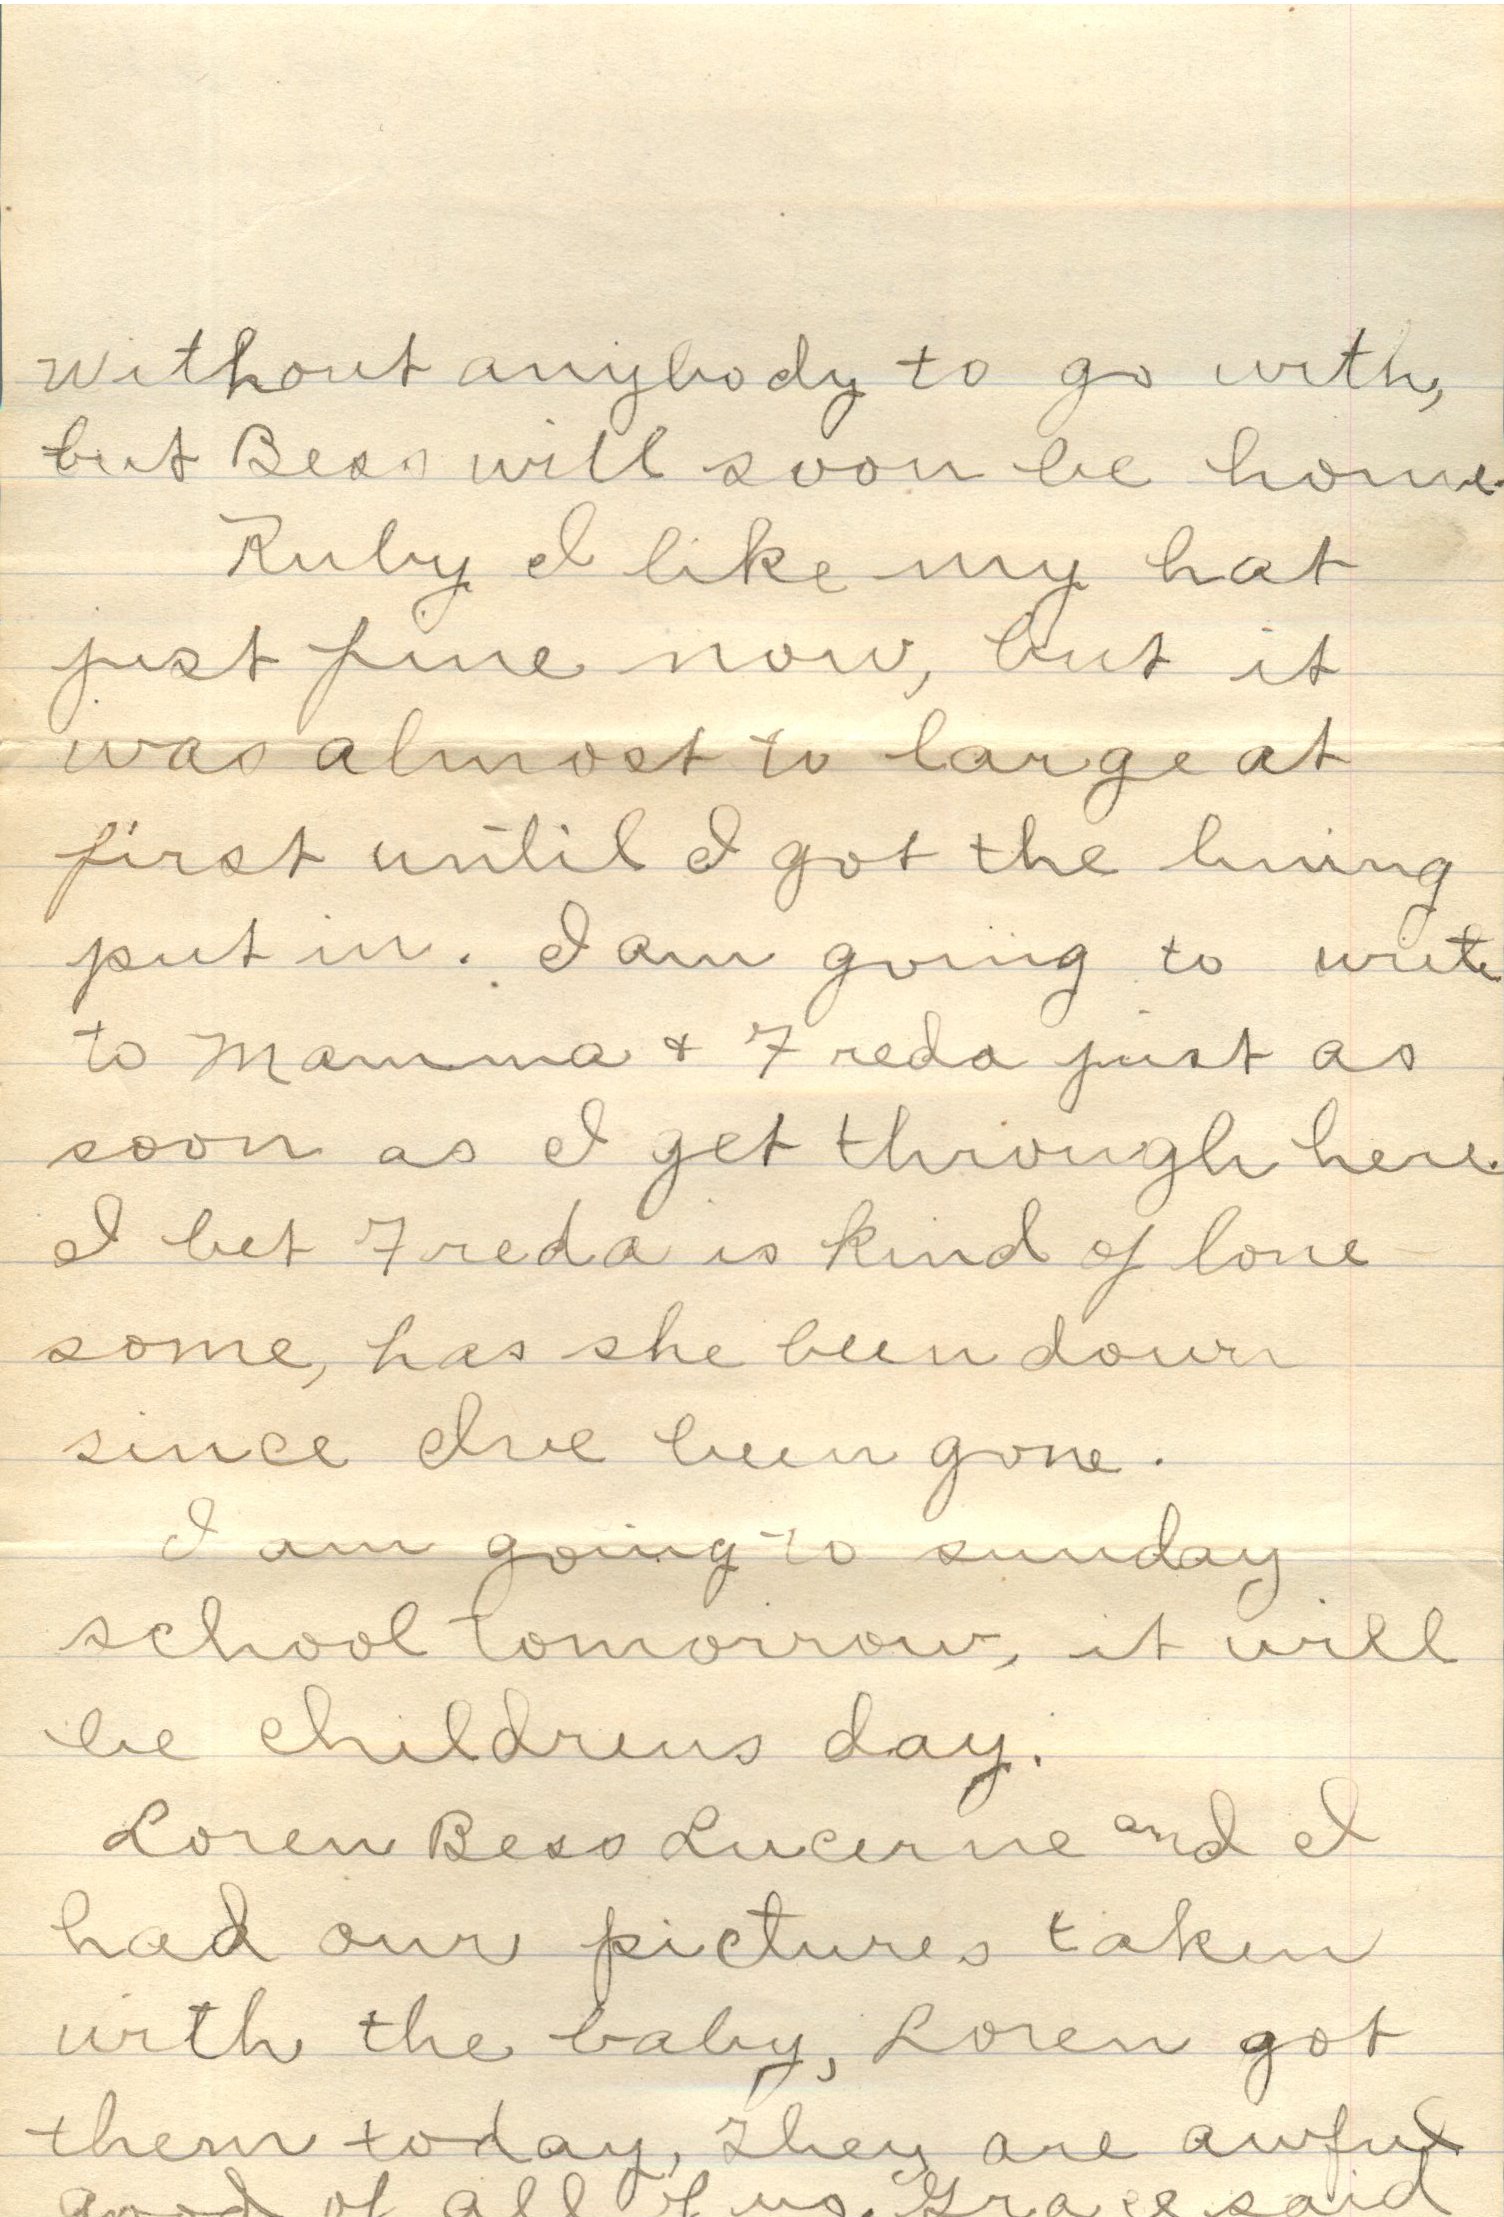 without anybody to go with,
but Bess will soon be home.
Ruby I like my hat
just fine now, but it
was almost to large at
first until I got the lining
put in. I am going to write
to Mamma & Freda just as
soon as I get through here.
I bet Freda is kind of lone
some, has she been down
since Ive been gone.
I am going to sunday
school tomorrow, it will
be childrens day.
Loren Bess Lucerne and I
had our pictures taken
with the baby, Loren got
them today, They are awful
good of all of us. Grace said